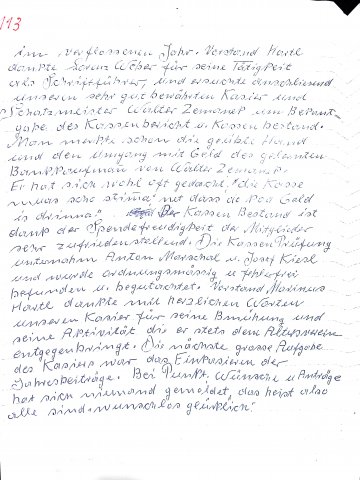 113
im verflossenen Jahr. Vorstand Hartl
dankte Lorenz Weber für seine Tätigkeit
als Schriftführer, und ersuchte anschliesend
unseren sehr gut bewährten Kasier und
Schatzmeister Walter Zemanek um Bekannt-
gabe des Kassenbericht u. Kassenbestand.
Man merkte schon die geübte Hand
und den Umgang mit Geld des gelernten
Bankkaufman von Walter Zemanek.
Er hat sich wohl oft gedacht, "die Kasse
muas scho stima, net dass a
is drinna" Der Kassen Bestand ist
dank der Spendefreudigkeit der Mitglieder
sehr zufriedenstellend. Die Kassen Prüfung
unternahm Anton Marschal u. Josef Kiesl
und wurde ordnungsmässig u. fehlerfrei
befunden u. begutachtet. Vorstand
Hartl dankte mit herzlichen Worten
unseren Kasier für seine Bmühung und
seine Aktivität die er stets dem
entgegenbringt. Die nächste grosse Aufgabe
des Kasiers war das Einkasieren der
Jahresbeiträge. Bei Punkt. Wünsche u Anträge
hat sich niemand gemeldet, das heist also
alle sind wunschlos glücklich!